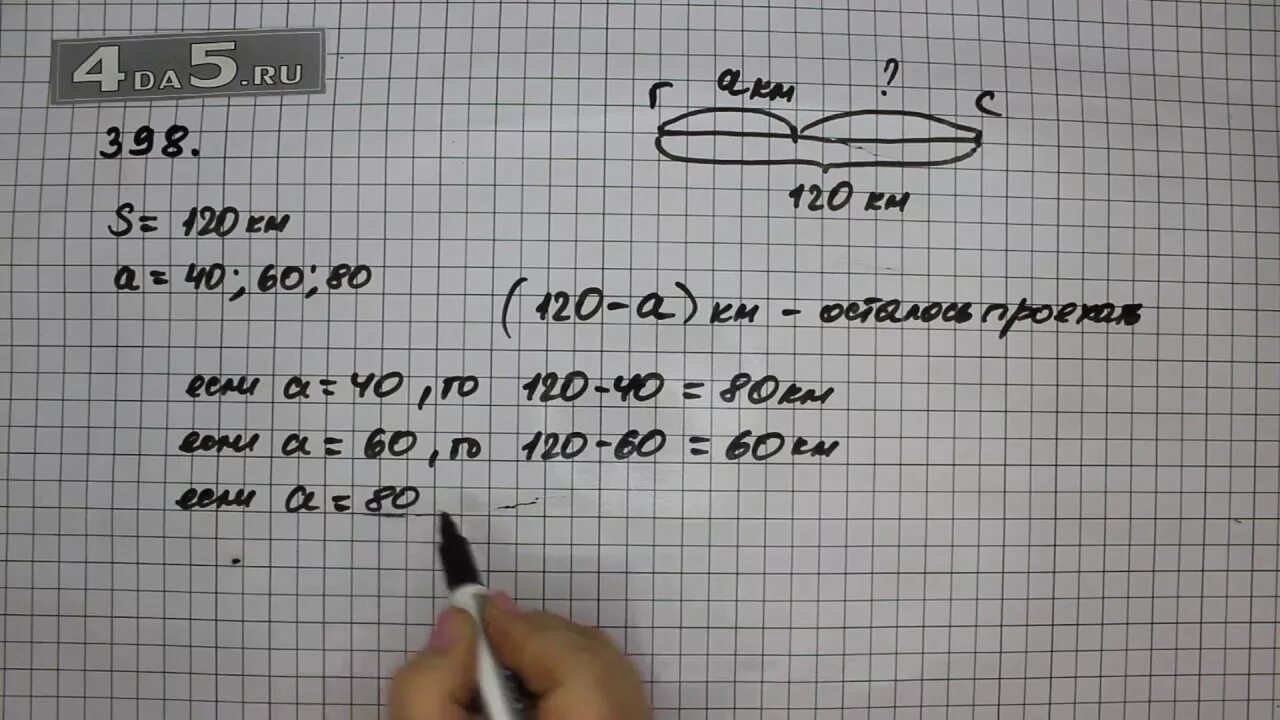 4DA5.RU
398.
Г а км ? С
120 км
S = 120 км
а = 40; 60; 80
(120 - а) км - осталось проехать
если а = 40, то 120 - 40 = 80 км
если а = 60, то 120 - 60 = 60 км
если а = 80